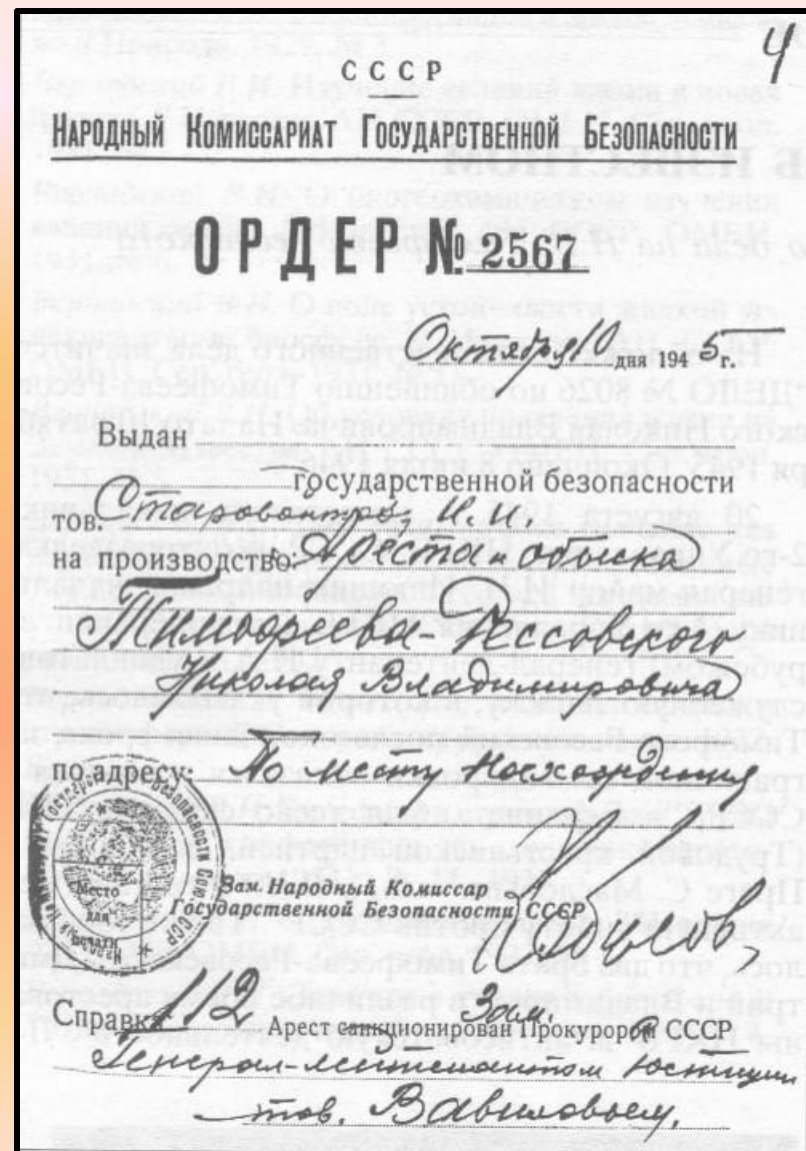 4
СССР
НАРОДНЫЙ КОМИССАРИАТ ГОСУДАРСТВЕННОЙ БЕЗОПАСНОСТИ
ОРДЕР № 2567
Октября 10 дня 1945 г.
Выдан
государственной безопасности
тов.
на производство: Ареста и обыска
Тимофеева-Рессовского
Николая Владимировича
по адресу: По месту нахождения
Зам. Народный Комиссар
Государственной Безопасности СССР
Место
для
печати
Справка: Арест санкционирован Зам. Прокурором СССР
Генерал-лейтенантом Юстиции
тов. Вавиловым.